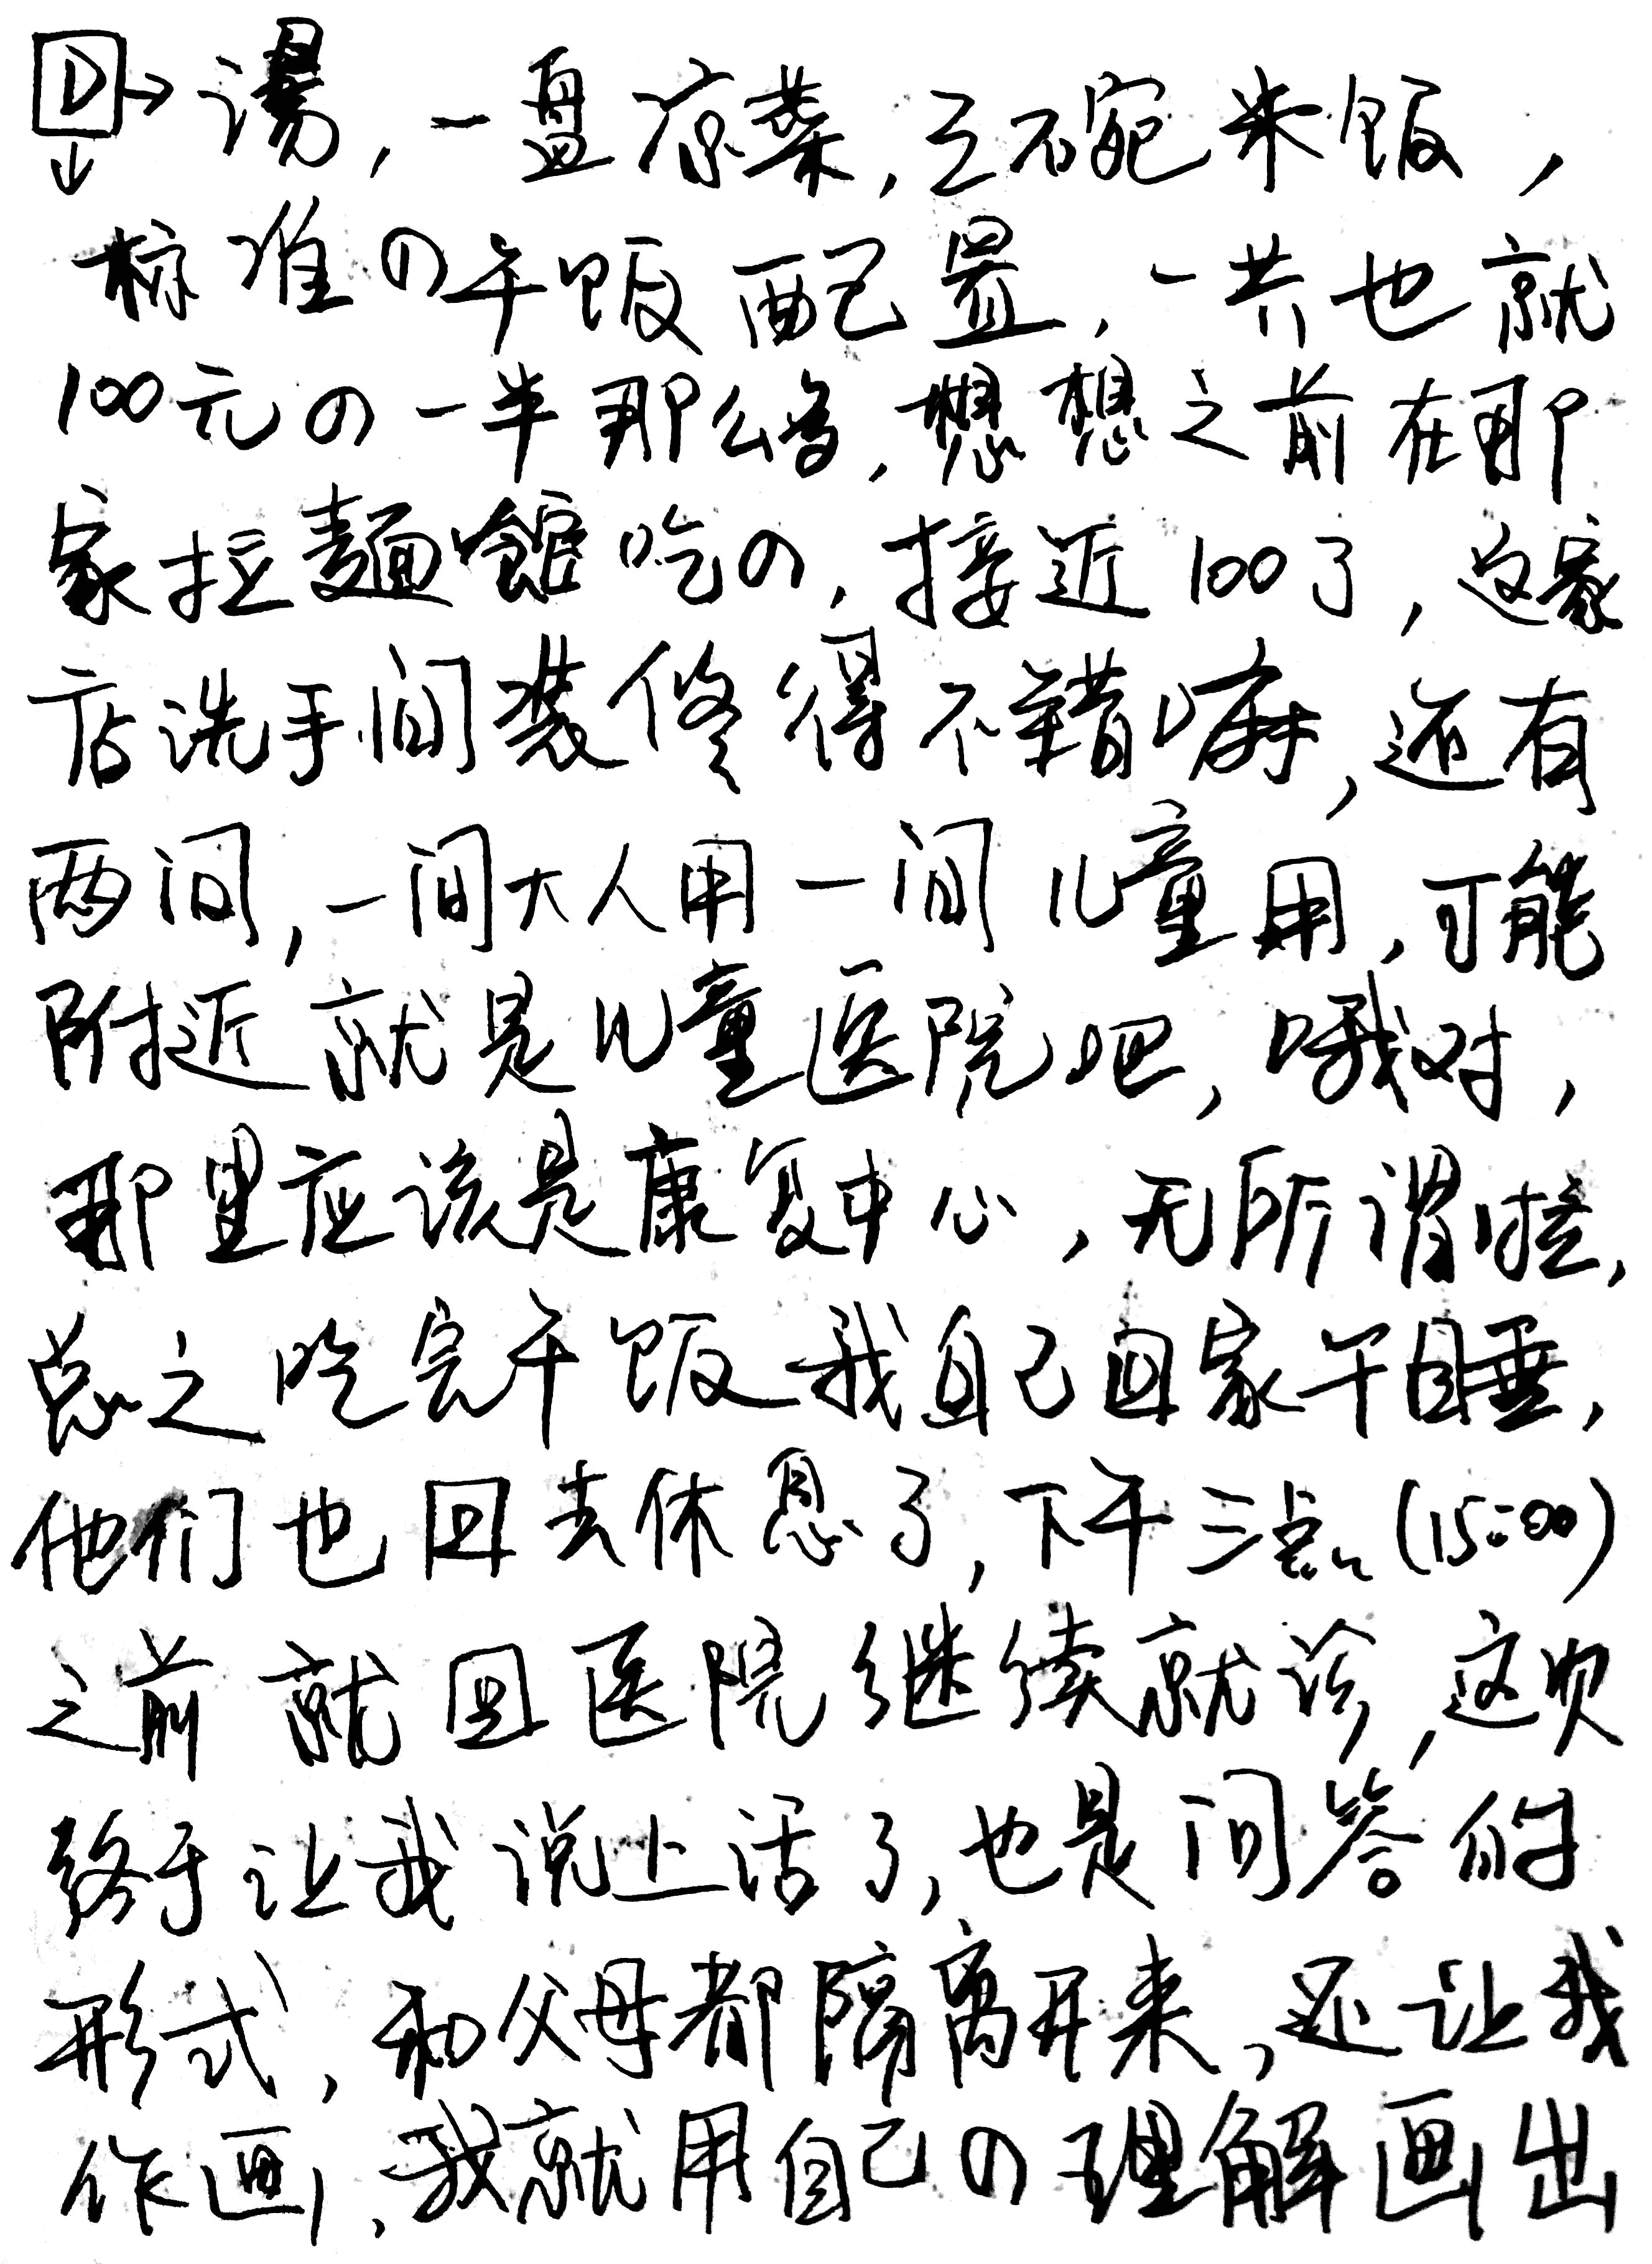 D→湯,一盘凉菜,三碗米饭,
↓
标准の午饭配置,一共也就
100元の一半那么多,想想之前在那
家拉麺館吃の,接近100了,这家
店洗手间装修得不错嘛,还有
两间,一间大人用一间儿童用,可能
附近就是儿童医院吧,哦对,
那里应该是康复中心,无所谓啦,
总之吃完午饭我自己回家午睡,
他们也回去休息了,下午三点(15:00)
之前就回医院继续就诊,这次
终于让我说上话了,也是问答的
形式,和父母都隔离开来,还让我
作画,我就用自己の理解画出